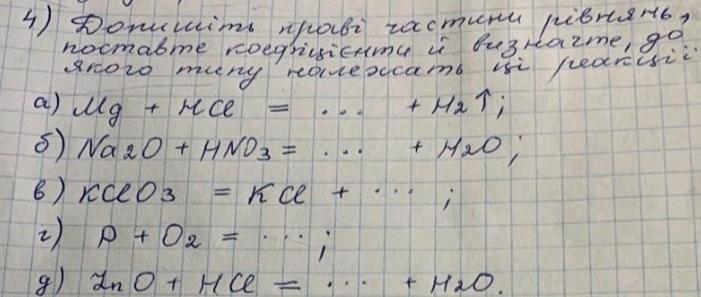 4) Допишіть праві частини рівнянь,
поставте коефіцієнти й визначте, до
якого типу належать ці реакції:
а) Mg + HCl = ... + H2↑;
б) Na2O + HNO3 = ... + H2O;
в) KClO3 = KCl + ... ;
г) P + O2 = ... ;
д) ZnO + HCl = ... + H2O.